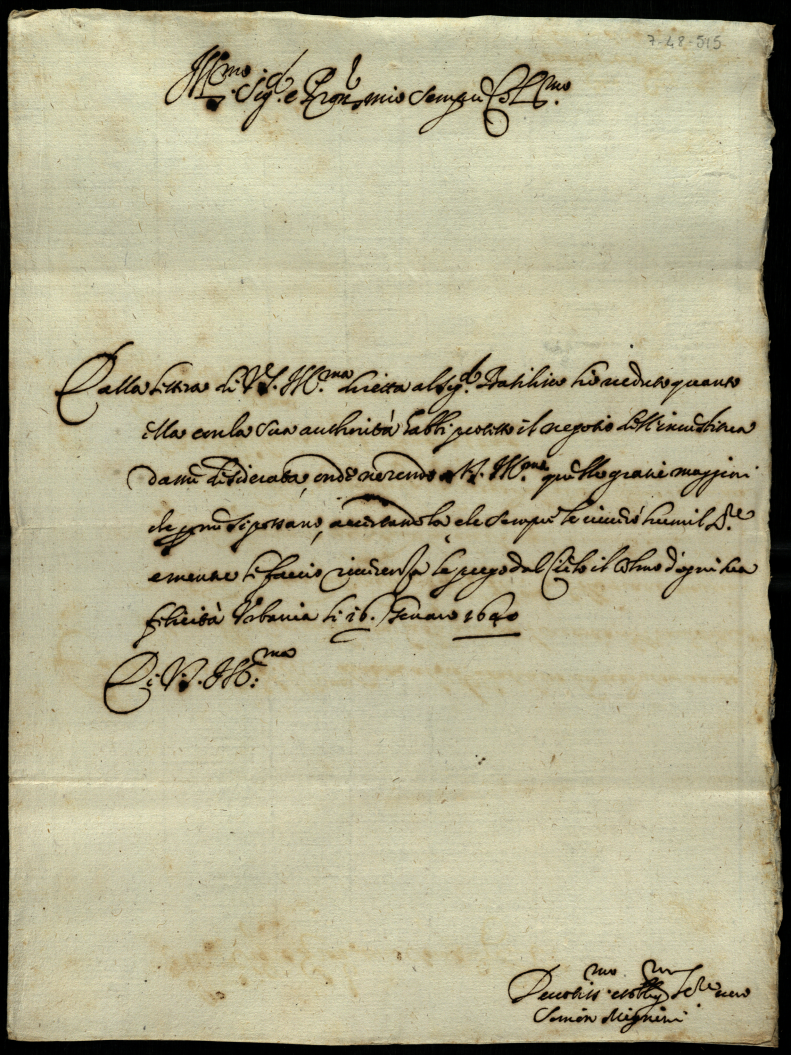 7-48-515
Ill.mo Sig.r e Pron mio sempre Coll.mo
Dalla lettera di V.S. Ill.ma diretta al Sig.r Basilio hò veduto quanto
ella con la sua authorità habbi protetto il negotio dell'
da me desiderata, onde ne rendo à V.S. Ill.ma quelle gratie maggiori
che si possano, accertandola che sempre le humil
e mentre li faccio riverenza le prego dal Cielo il colmo d'ogni sua
felicità Urbania li 16. Genaro 1640
Di V.S. Ill.ma
Devotiss.mo et obblig.mo Ser.re vero
Simon